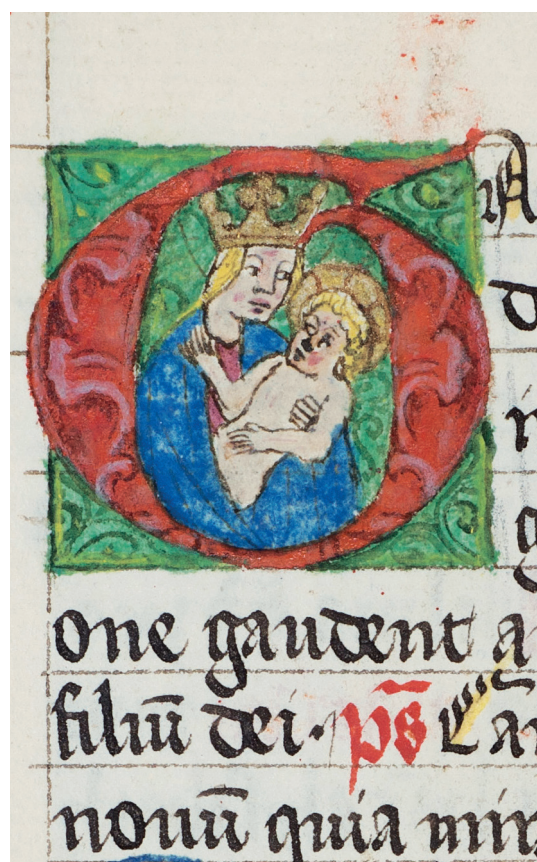 G A
d
one gaudent a
filiū dei · p̄s Cā
nouū quia mir